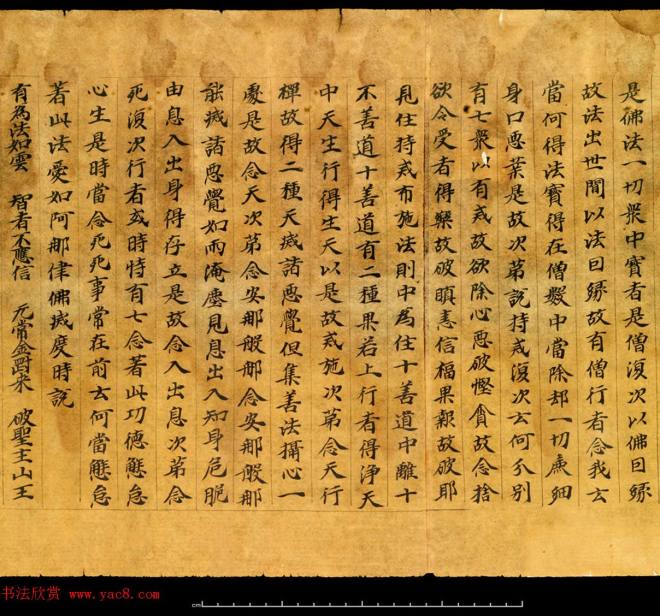 是佛法一切衆中寶者是僧復次以佛曰縁
故法出世間以法曰縁故有僧行者念我云
當何得法寶得在僧數中當除却一切麁細
身口惡業是故次第説持戒復次云何分別
有七衆以有戒故欲除心惡破慳貪故念捨
欲令受者得樂故破瞋恚信福果報故破耶
見住持戒布施法則中為住十善道中離十
不善道十善道有二種果若上行者得淨天
中天生行得生天以是故戒施次第念天行
禪故得二種天滅諸惡覺但集善法攝心一
處是故念天次第念安那般那念安那般那
能滅諸惡覺如雨淹塵見息出入知身危脆
由息入出身得存立是故念入出息次第念
死復次行者或時恃有七念著此功德懈怠
心生是時當念死死事常在前云何當懈怠
著此法愛如阿那律佛滅度時説
有為法如雲 智者不應信 无常金剛來 破聖主山王
书法欣赏 www.yac8.com
cm